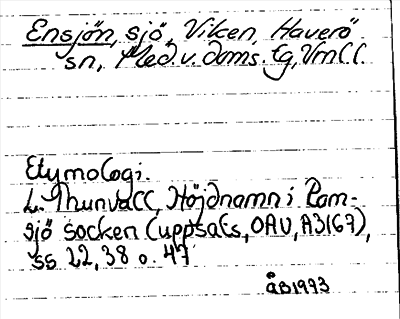 Ensjön, sjö, Viken, Haverö
sn, Med. v. doms. tg, Vrnll.
Etymologi.
L. Thunvall, Höjdnamn i Ram-
sjö socken (uppsats, OAU, A3167),
ss 22, 38 o. 47
ÅB 1993